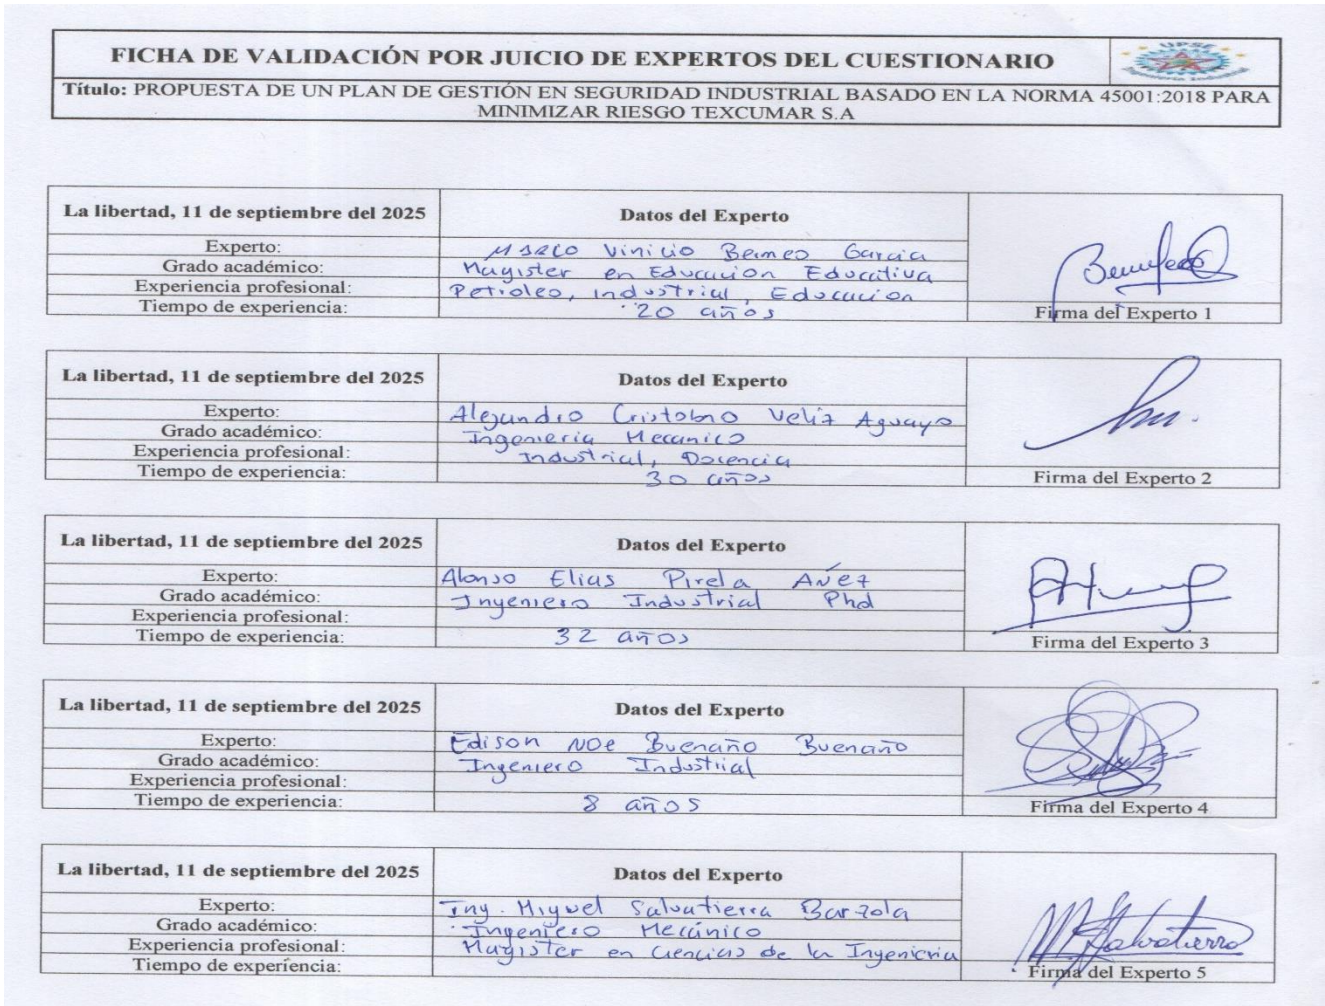 FICHA DE VALIDACIÓN POR JUICIO DE EXPERTOS DEL CUESTIONARIO
UPSE
Título: PROPUESTA DE UN PLAN DE GESTIÓN EN SEGURIDAD INDUSTRIAL BASADO EN LA NORMA 45001:2018 PARA
MINIMIZAR RIESGO TEXCUMAR S.A
La libertad, 11 de septiembre del 2025 Datos del Experto
Experto: Marco Vinicio Bermeo Garcia
Grado académico: Magister en Educación Educativa
Experiencia profesional: Petroleo, industrial, Educación
Tiempo de experiencia: 20 años
Firma del Experto 1
La libertad, 11 de septiembre del 2025 Datos del Experto
Experto: Alejandro Veliz Aguayo
Grado académico: Ingenieria Mecanico
Experiencia profesional: Industrial, Docencia
Tiempo de experiencia: 30 años
Firma del Experto 2
La libertad, 11 de septiembre del 2025 Datos del Experto
Experto: Alonso Elias Pirela Añez
Grado académico: Ingeniero Industrial Phd
Experiencia profesional:
Tiempo de experiencia: 32 años
Firma del Experto 3
La libertad, 11 de septiembre del 2025 Datos del Experto
Experto: Edison Noe Buenaño Buenaño
Grado académico: Ingeniero Industrial
Experiencia profesional:
Tiempo de experiencia: 8 años
Firma del Experto 4
La libertad, 11 de septiembre del 2025 Datos del Experto
Experto: Ing. Miguel Salvatierra Barzola
Grado académico: Ingeniero Mecánico
Experiencia profesional: Magister en Ciencias de la Ingenieria
Tiempo de experiencia:
Firma del Experto 5